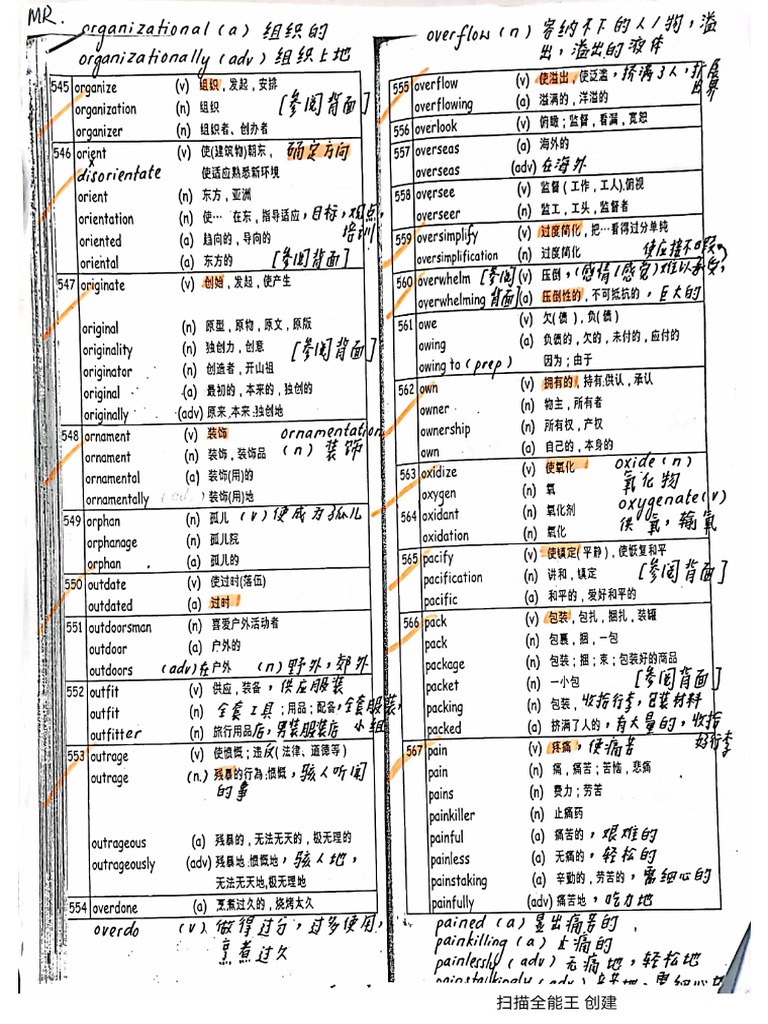 MR.
organizational (a) 组织的
organizationally (adv) 组织上地
545 organize (v) 组织，发起，安排
organization (n) 组织 [参阅背面]
organizer (n) 组织者、创办者
546 orient (v) 使(建筑物)朝东， 确定方向
disorientate 使适应熟悉新环境
orient (n) 东方，亚洲
orientation (n) 使… 在东，指导适应，目标，观点，
培训
oriented (a) 趋向的，导向的
oriental (a) 东方的 [参阅背面]
547 originate (v) 创始，发起，使产生
original (n) 原型，原物，原文，原版
originality (n) 独创力，创意 [参阅背面]
originator (n) 创造者，开山祖
original (a) 最初的，本来的，独创的
originally (adv) 原来,本来,独创地
548 ornament (v) 装饰 ornamentation
ornament (n) 装饰，装饰品 (n) 装饰
ornamental (a) 装饰(用)的
ornamentally (adv) 装饰(用)地
549 orphan (n) 孤儿 (v) 使成为孤儿
orphanage (n) 孤儿院
orphan (a) 孤儿的
550 outdate (v) 使过时(落伍)
outdated (a) 过时
551 outdoorsman (n) 喜爱户外活动者
outdoor (a) 户外的
outdoors (adv) 在户外 (n) 野外，郊外
552 outfit (v) 供应，装备，供应服装
outfit (n) 全套工具；用品；配备，全套服装，
小组
outfitter (n) 旅行用品店，男装服装店
553 outrage (v) 使愤慨；违反(法律、道德等)
outrage (n.) 残暴的行為;愤慨，骇人听闻
的事
outrageous (a) 残暴的，无法无天的，极无理的
outrageously (adv) 残暴地;愤慨地，骇人地，
无法无天地,极无理地
554 overdone (a) 烹煮过久的，烧烤太久
overdo (v) 做得过分，过多使用，
烹煮过久
overflow (n) 容纳不下的人/物，溢
出，溢出的液体
555 overflow (v) 使溢出，使泛滥，挤满了人，扩展
边界
overflowing (a) 溢满的，洋溢的
556 overlook (v) 俯瞰；监督，看漏，宽恕
557 overseas (a) 海外的
overseas (adv) 在海外
558 oversee (v) 监督(工作，工人),俯视
overseer (n) 监工，工头，监督者
559 oversimplify (v) 过度简化，把…看得过分单纯
oversimplification (n) 过度简化 使应接不暇
560 overwhelm [参阅 (v) 压倒，(感情/感觉)难以承受，
overwhelming 背面] (a) 压倒性的，不可抵抗的，巨大的
561 owe (v) 欠(债)，负(债)
owing (a) 负债的，欠的，未付的，应付的
owing to (prep) 因为；由于
562 own (v) 拥有的，持有,供认，承认
owner (n) 物主，所有者
ownership (n) 所有权，产权
own (a) 自己的，本身的
563 oxidize (v) 使氧化 oxide (n)
氧化物
oxygen (n) 氧 oxygenate (v)
564 oxidant (n) 氧化剂 供氧，输氧
oxidation (n) 氧化
565 pacify (v) 使镇定(平静)，使恢复和平
pacification (n) 讲和，镇定 [参阅背面]
pacific (a) 和平的，爱好和平的
566 pack (v) 包装，包扎，捆扎，装罐
pack (n) 包裹，捆，一包
package (n) 包装；捆；束；包装好的商品
packet (n) 一小包 [参阅背面]
packing (n) 包装，收拾行李，包装材料
packed (a) 挤满了人的，有大量的，收拾
好行李
567 pain (v) 疼痛，使痛苦
pain (n) 痛，痛苦；苦恼，悲痛
pains (n) 费力；劳苦
painkiller (n) 止痛药
painful (a) 痛苦的，艰难的
painless (a) 无痛的，轻松的
painstaking (a) 辛勤的，劳苦的，需细心的
painfully (adv) 痛苦地，吃力地
pained (a) 显出痛苦的
painkilling (a) 止痛的
painlessly (adv) 无痛地，轻松地
painstakingly (adv)
扫描全能王 创建